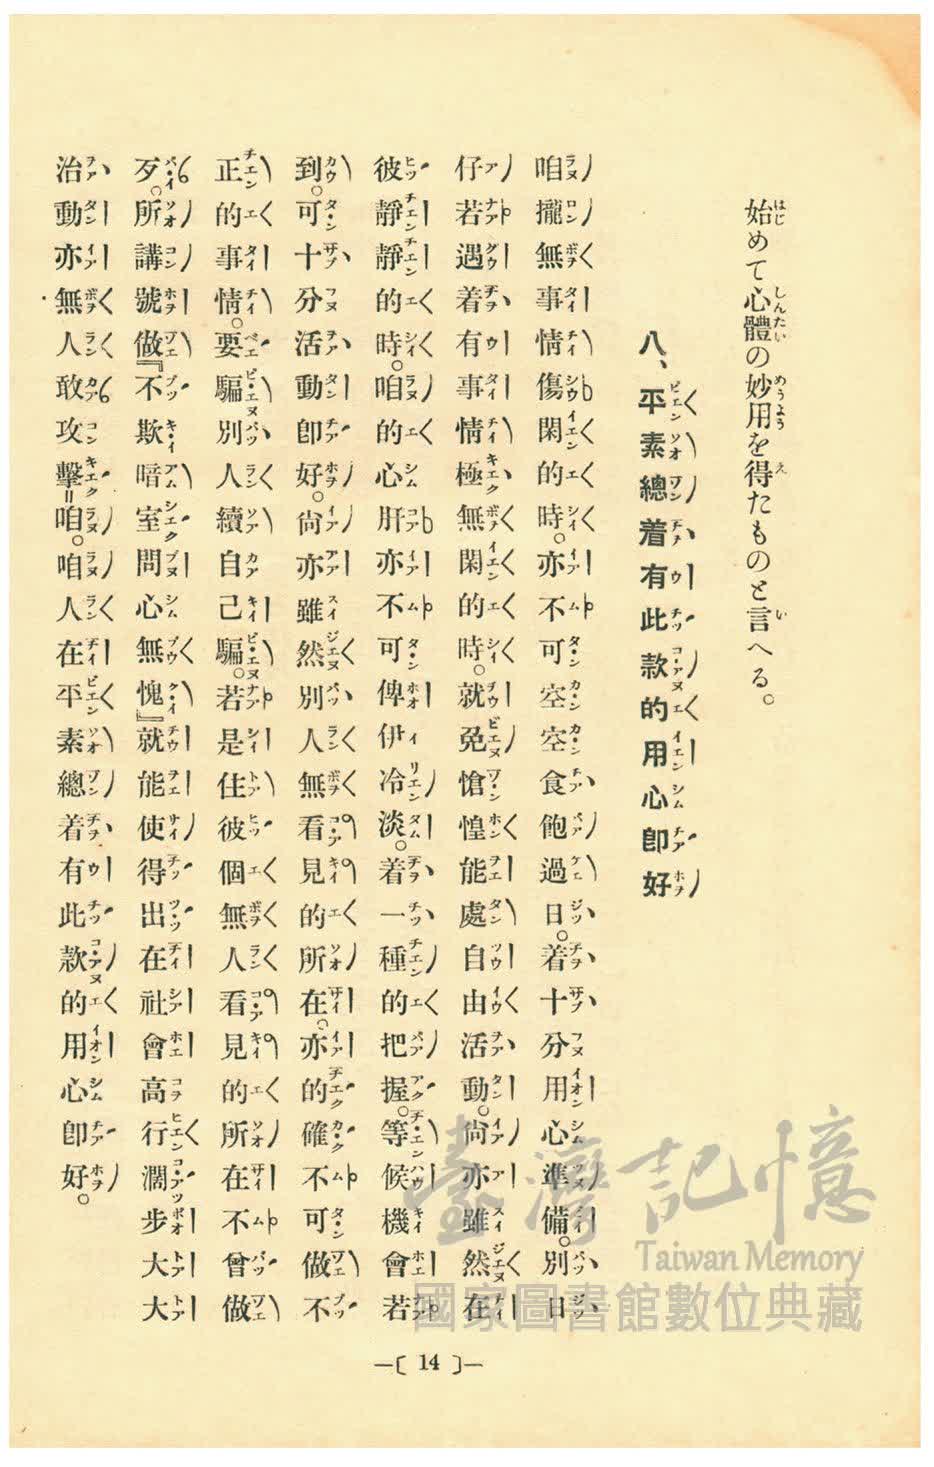 始めて心體の妙用を得たものと言へる。
八、平素總着有此款的用心卽好
咱攏無事情傷閑的時。亦不可空空食飽過日。着十分用心準備。別日
仔若遇着有事情極無閑的時。就免愴惶能處自由活動。尙亦雖然在
彼靜靜的時。咱的心肝亦不可俾伊冷淡。着一種的把握。等候機會若
到。可十分活動卽好。尙亦雖然別人無看見的所在。亦的確不可做不
正的事情。要騙別人續自己騙。若是住彼個無人看見的所在不曾做
歹。所講號做『不欺暗室問心無愧』就能使得出在社會高行濶步大大
治動亦無人敢攻擊=咱。咱人在平素總着有此款的用心卽好。
—〔 14 〕—
臺灣記憶
Taiwan Memory
國家圖書館數位典藏